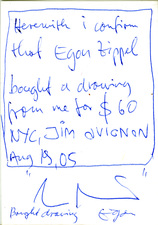 Herewith i confirm
that Egon Zippel
bought a drawing
from me for $60
NYC, Jim AVIGNON
Aug 19, 05
" "
Bought drawing Egon